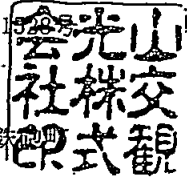 山交観
光株式
會社印